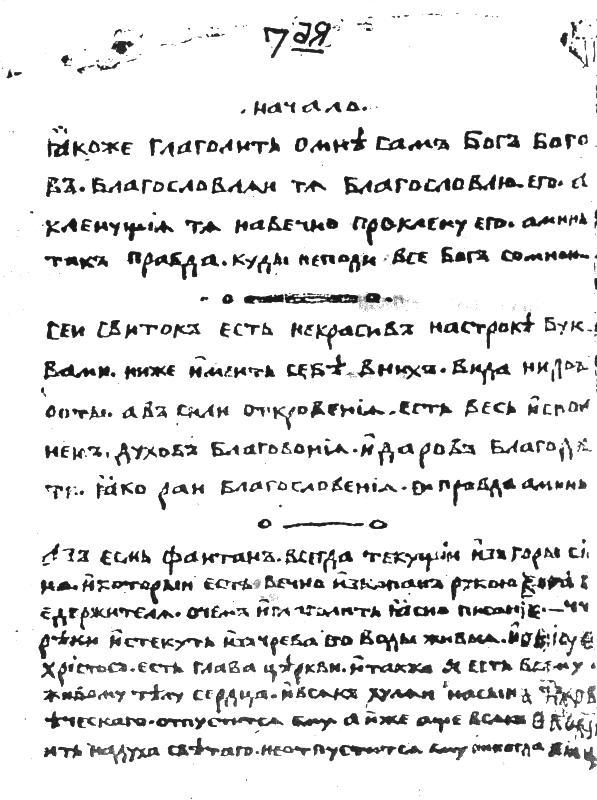 7 ая
.начало.
Ꙗкоже глаголить омнѣ самъ богъ бого
въ. благословлаи тѧ благословлю его. а
кленущiѧ тѧ навечно проклену его. аминь
такъ правда. куды неподи все богъ сомною.
сеи свитокъ есть некрасивъ настрокѣ бук
вами. ниже имѣить себѣ внихъ. вида нидоб
роты. авъ сили откровенiѧ. есть весь испол
ненъ. духовъ благовонiѧ. и даровъ благода
ти. Ꙗко раи благословенiѧ. правда аминь
Азъ есмь фантанъ. всегда текущiи изъ горы сi
на. и которыи есть вечно ископанъ рукою
едержителѧ. очемъ и глаголить ꙗсно писанiе.
рѣки истекуть изъ чрева его воды живыѧ.
христосъ. есть глава цѣркви. и также я есть всему
живому тѣлу сердца. и всѧкъ хулаи насынa
ѣческаго. отпуститсѧ ему а иже аще всѧкъ
ить надуха свѣтаго. неотпуститсѧ ему никогда